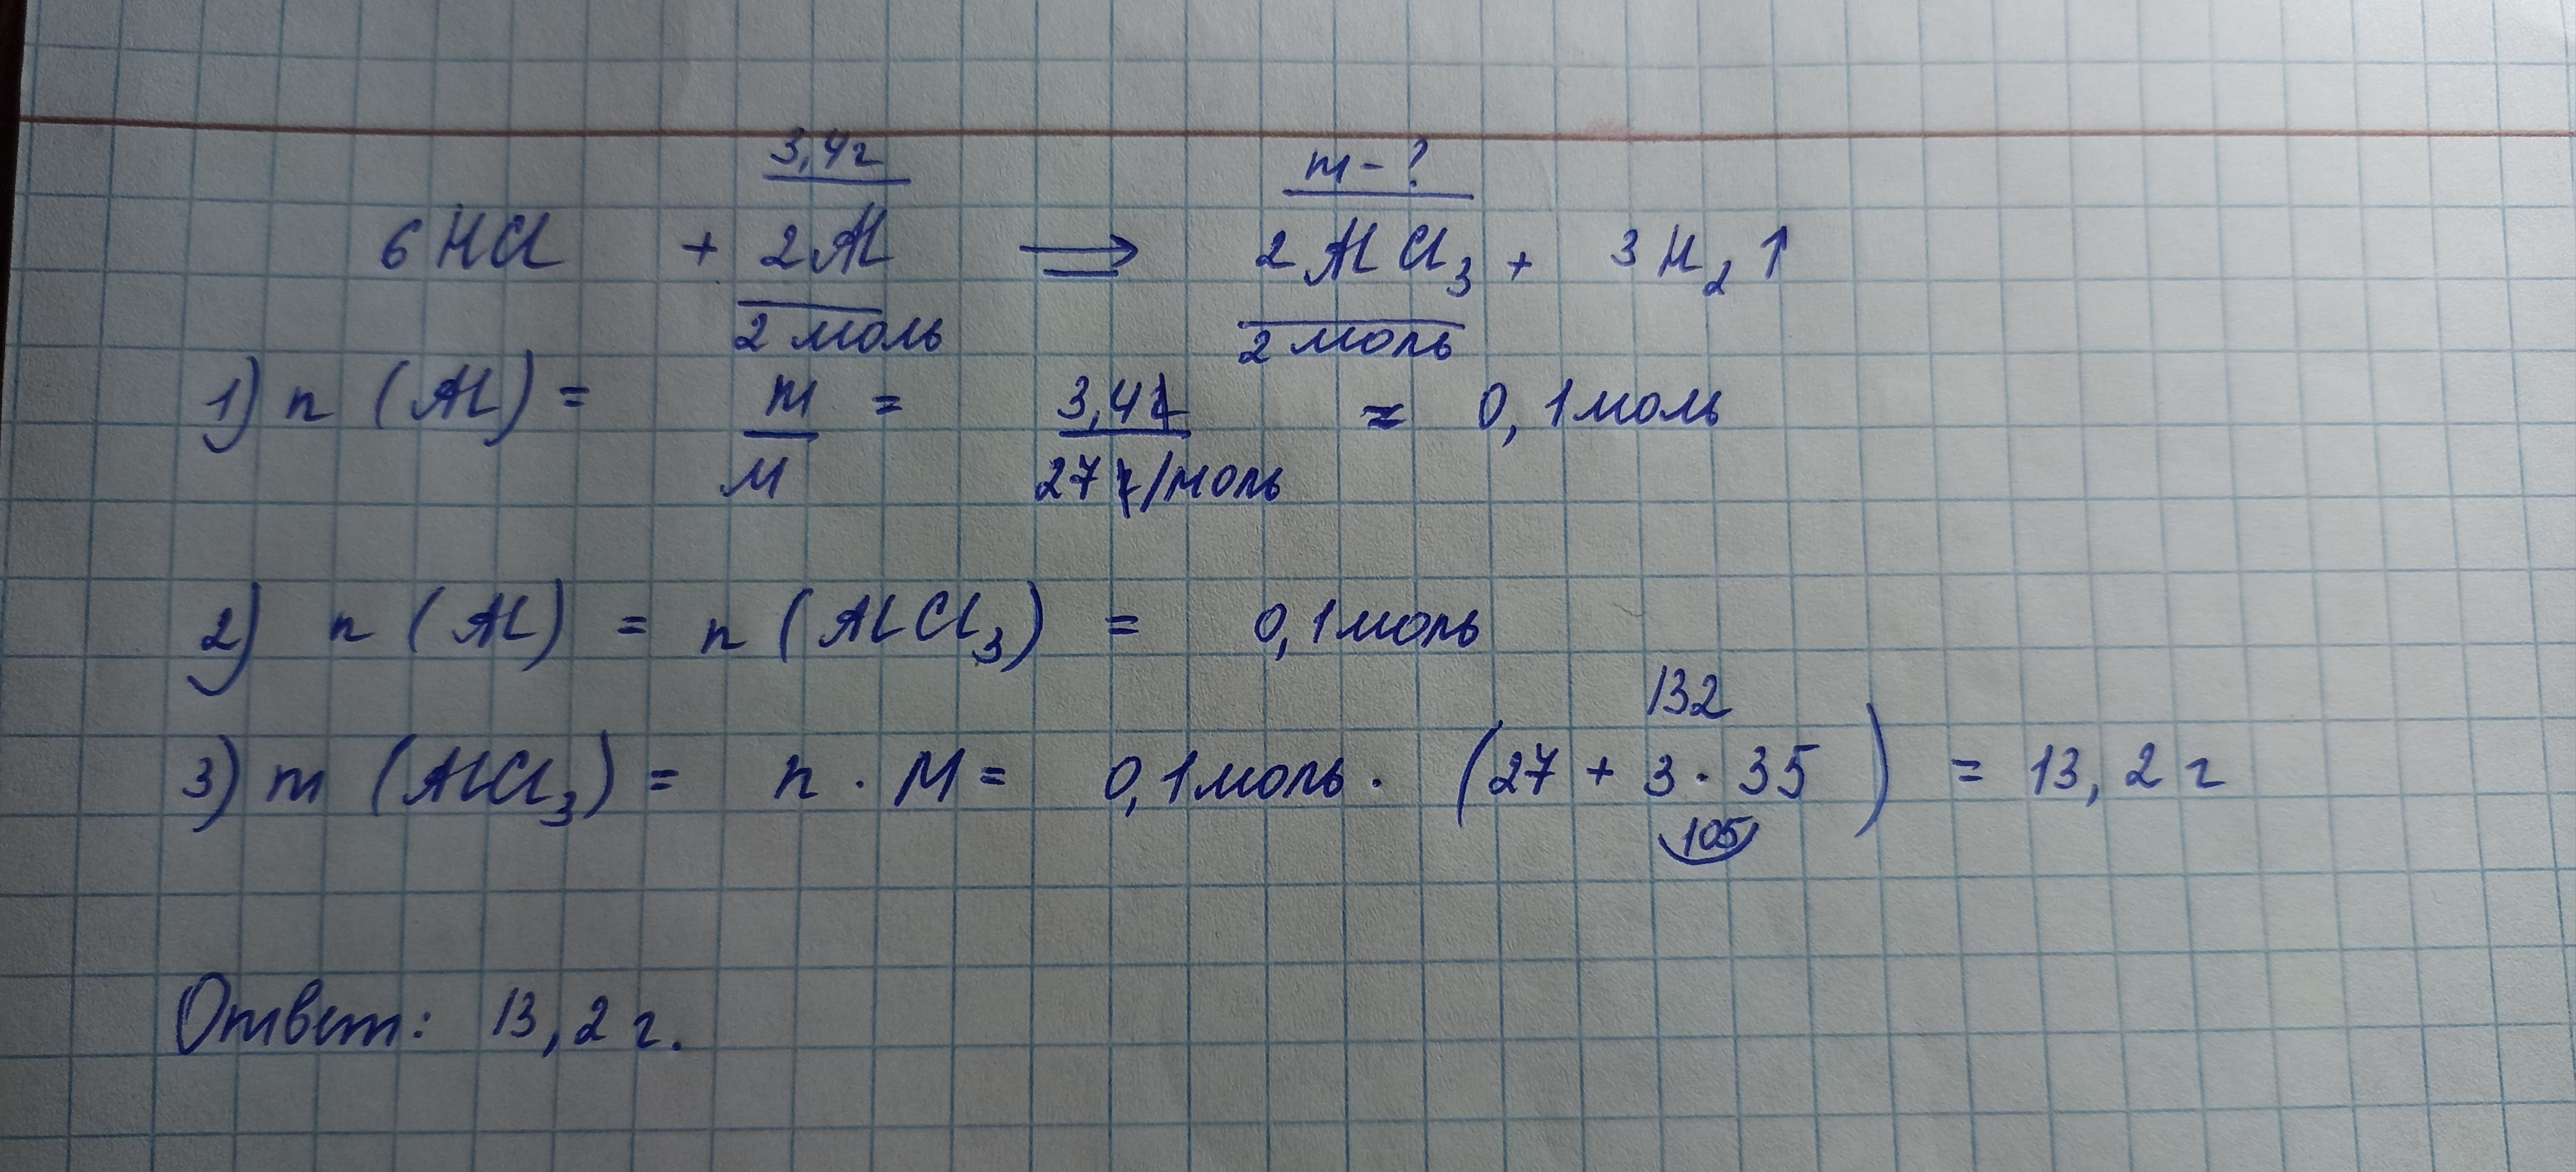 3,4г m-?
6HCl + 2Al ⇒ 2AlCl₃ + 3H₂↑
2 моль 2 моль
1) n (Al) = m/M = 3,4г/27г/моль ≈ 0,1моль
2) n (Al) = n (AlCl₃) = 0,1моль
132
3) m (AlCl₃) = n · M = 0,1моль · (27 + 3 · 35) = 13,2г
105
Ответ: 13,2г.